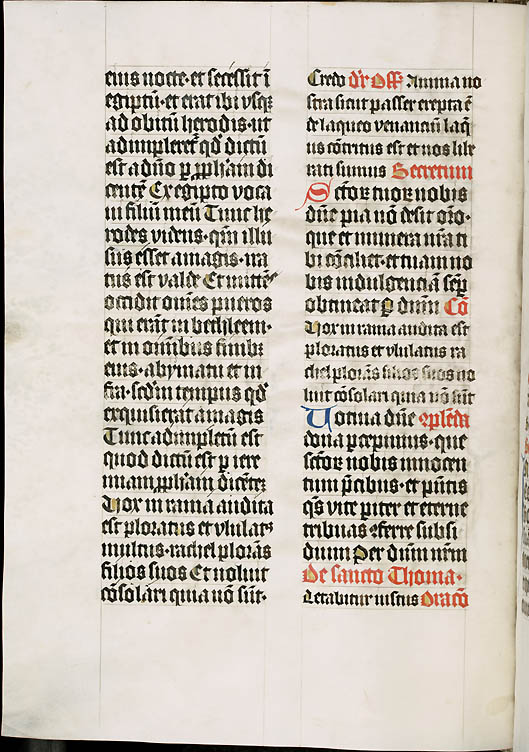 eius nocte·et secessit ī
egiptū·et erat ibi vsq;
ad obitū herodis·ut
adimpleret᷑ qd̄ dictū
est a dn̄o p̲ ꝓpħam di
centē Ex egipto voca
ui filiū meū Tunc he
rodes videns·qm̄ illu
sus esset a magis·ira
tus est valde Et mittēs
occidit om̄es pueros
qui erāt in bethleem·
et in om̄ibus finibꝫ
eius·a bymatu et in
fra·sedm̄ tempus qd̄
exquisierat a magis
Tunc adimpletū est
quod dictū est p̲ iere
miam ꝓpħam dicētē
Vox in rama audita
est ploratus et vlulat᷒
multus·rachel plorās
filios suos Et noluit
cōsolari quia nō sūt·
Credo d'r Off Anima no
stra sicut passer erepta ē
de laqueo venanciū laq̄
us cōtritus est et nos libe
rati sumus Secretum
Sctoꝝ tuoꝝ nobis
dn̄e pia nō desit or̄o·
que et munera nr̄a ti
bi cōciliet·et tuam no
bis indulgenciā semp̲
obtineat P̲ dn̄m Cō
Vox in rama audita est
ploratus et vlulatus ra
chel plorās filios suos no
luit cōsolari quia nō sūt
Votiua dn̄e ꝯplēda
dona p̲cepimus·que
sctoꝝ nobis innocen
tum p̄cibus·et p̄ntis
qs̄ vite pariter et eterne
tribuas ꝯferre subsi
dium Per dn̄m nr̄m
De sancto Thoma·
Letabitur iustus Oracō